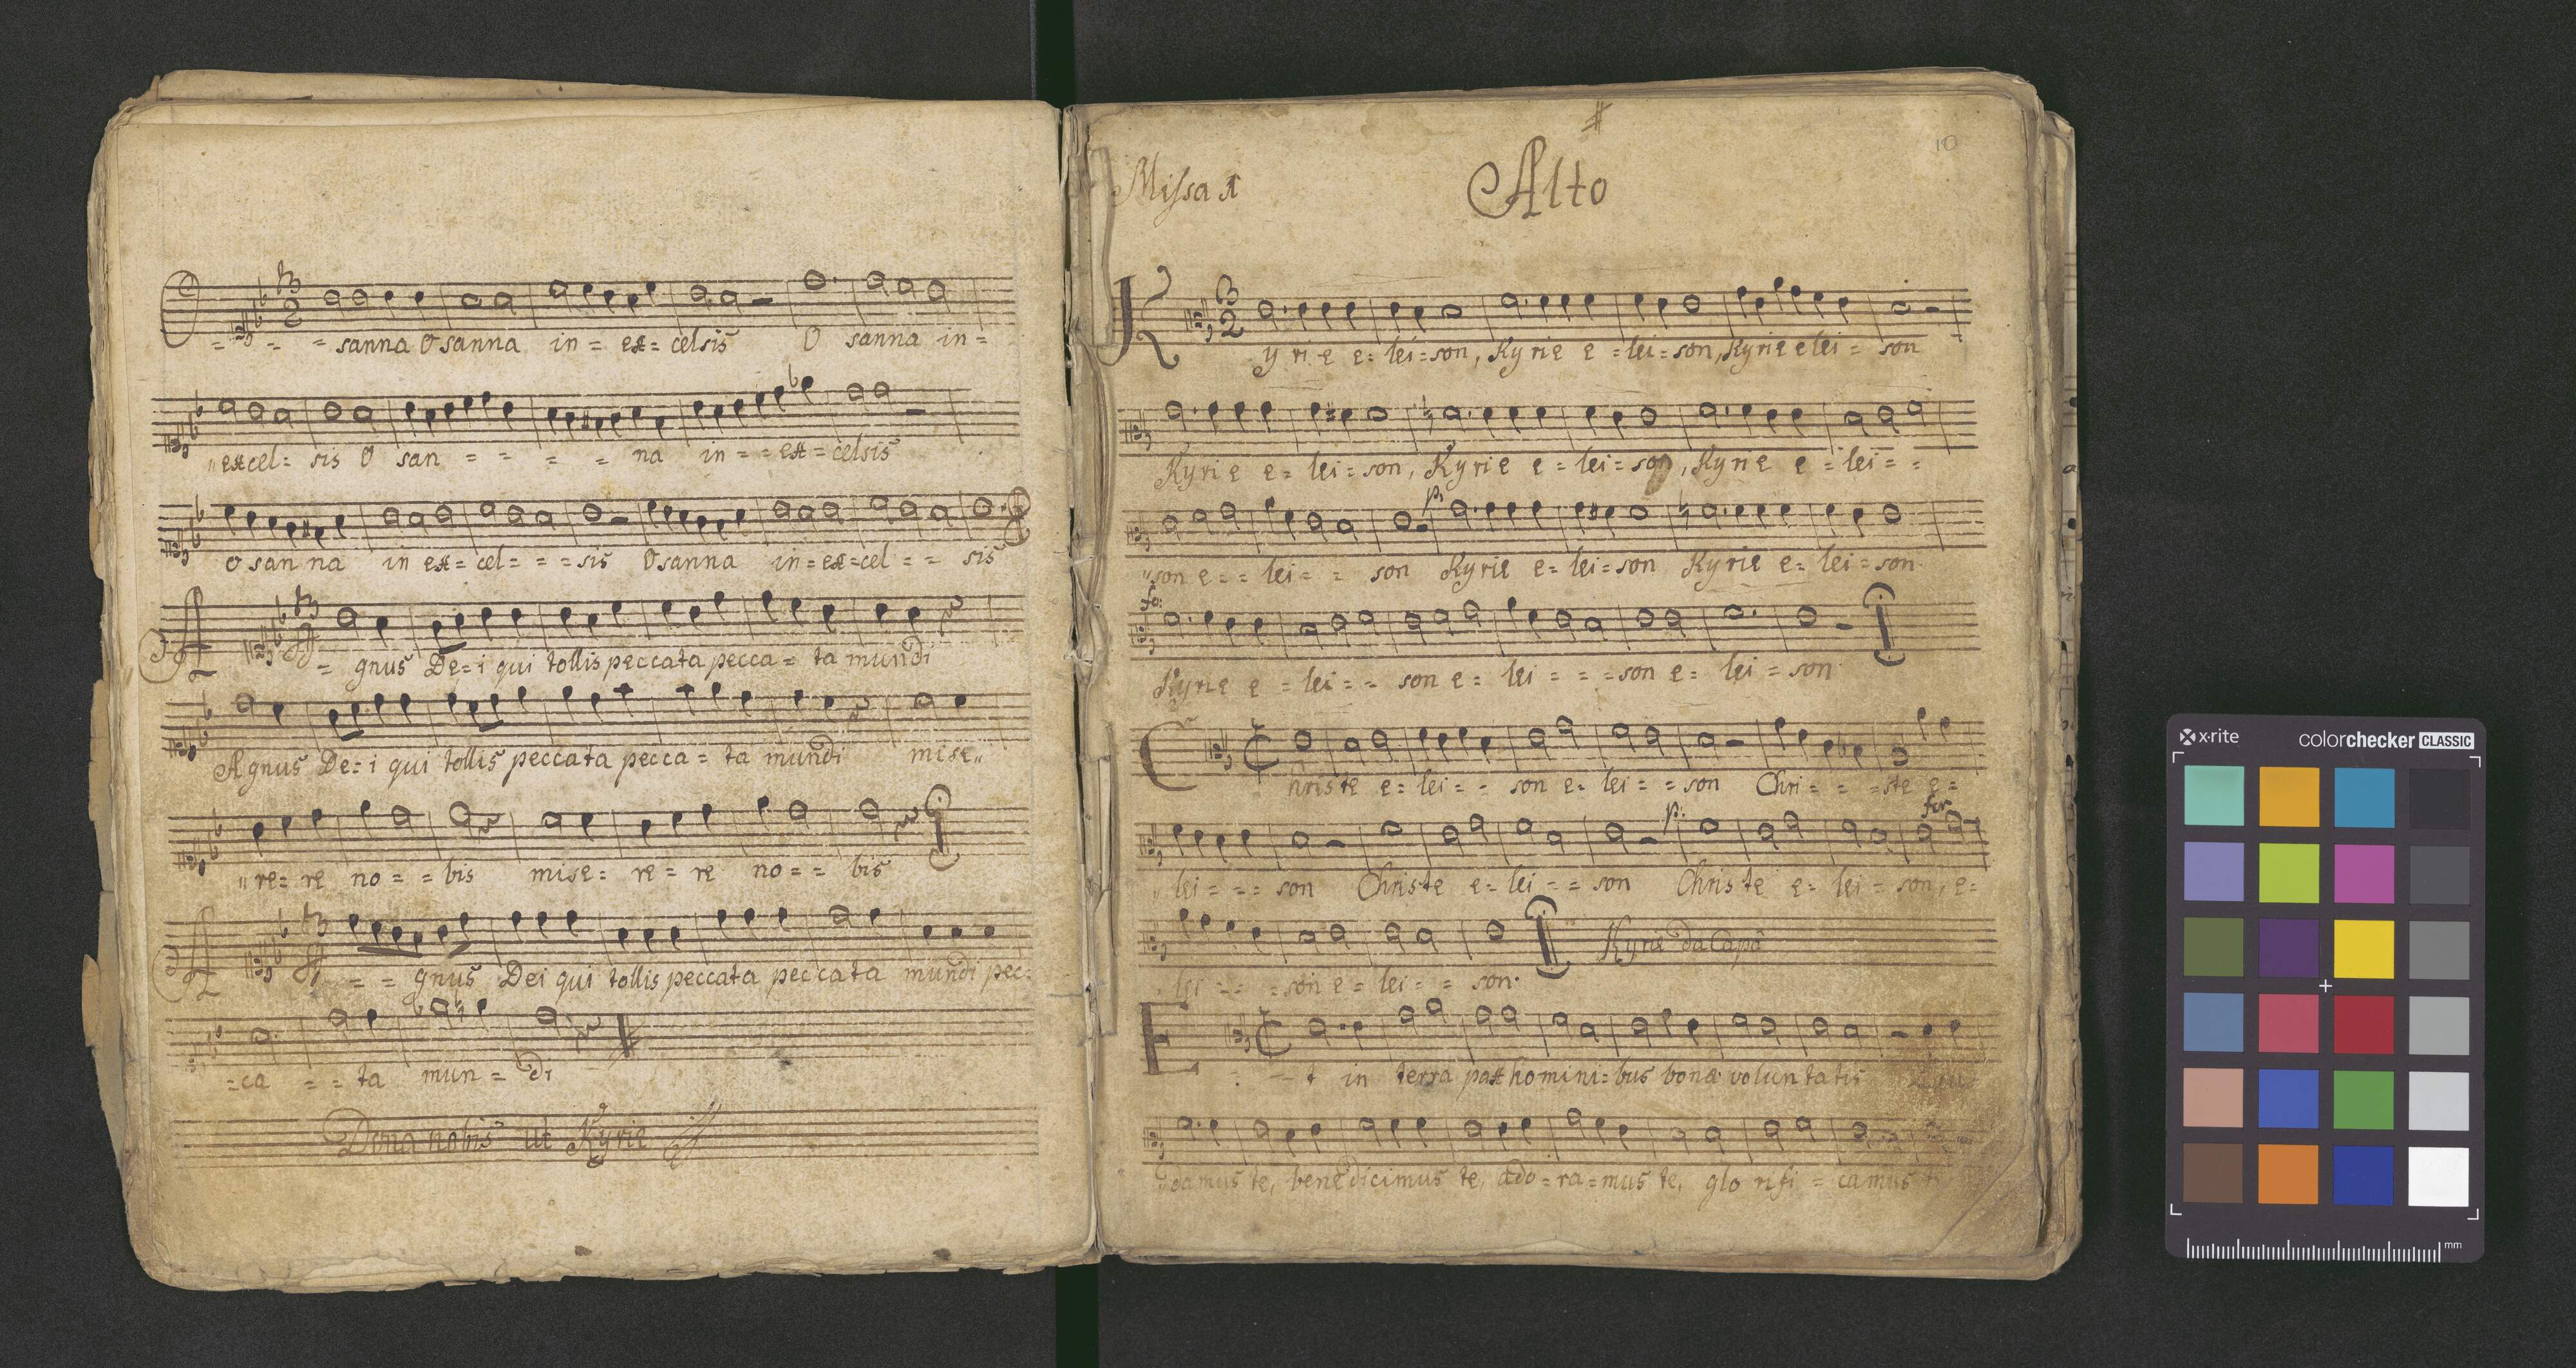 O = = = sanna O sanna in = ex = celsis O sanna in =
" excel = sis O san = = = = na in = = ex = celsis
O san na in ex = cel = = = sis Osanna in = ex = cel = = sis
A = gnus De = i qui tollis peccata pecca = ta mundi
Agnus De = i qui tollis peccata pecca = ta mundi mise "
" re = re no = = bis mise = re = re no = = bis
A = = gnus Dei qui tollis peccata peccata mundi pec =
= ca = = ta mun = di
Dona nobis ut Kyrie
10
Missa 1
Alto
K y ri e e = lei = son, Kyrie e = lei = son, Kyrie elei = son
Kyrie e = lei = son, Kyrie e = lei = son, Kyrie e = lei = =
p.
" son e = = lei = = son Kyrie e = lei = son Kyrie e = lei = son
fo:
Kyrie e = lei = = son e = lei = = = son e = lei = son
C hriste e = lei = = son e = lei = = son Chri = = = ste e =
p. for
" lei = = = son Christe e = lei = = son Christe e = lei = son, e =
Kyrie da Capo
lei = = = son e = lei = = son.
E t in terra pax homini = bus bonæ volun ta tis
damus te, benedicimus te, ado = ra = mus te, glo rifi = camus
x·rite
colorchecker CLASSIC
mm